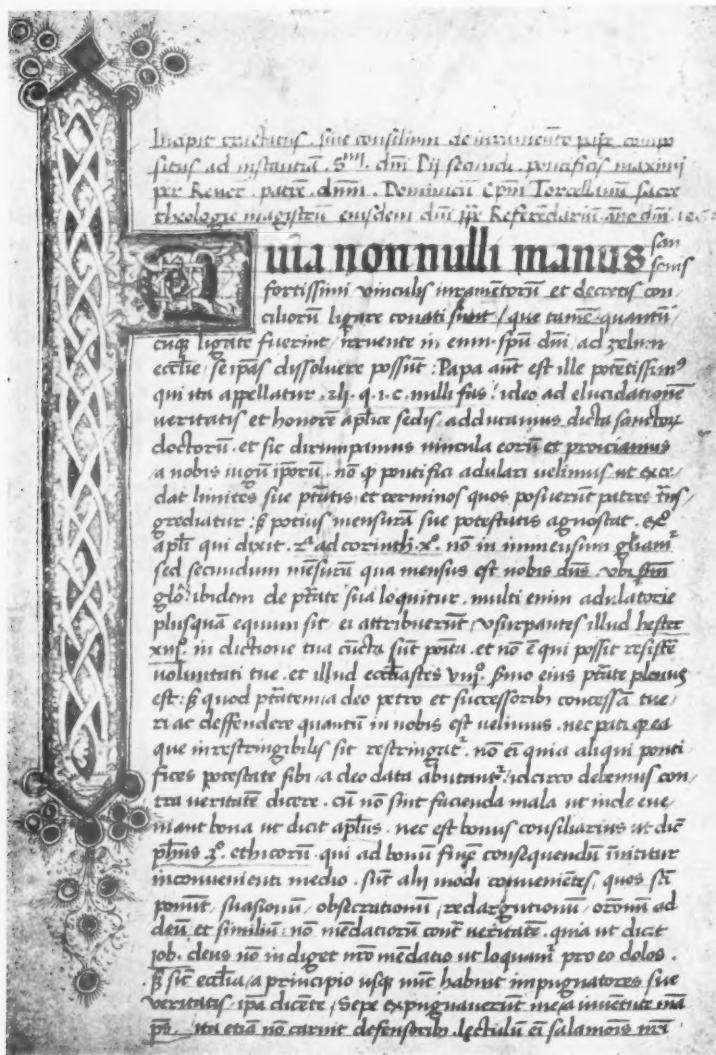 Incipit tractatus. siue consilium de iuramento pape compo
situs ad instantiã. Sᵐⁱ. dñi Pij secundi. pontificis maximi
per Reuer. patrẽ. dnm. Dominicũ Epm Torcellanũ sacre
theologie magistrũ eiusdem dñi ppe Referẽdariũ. año dñi.
Quia non nulli manus san
fortissimi vinculis iuramẽtorũ et decretis con
ciliorũ ligare conati sunt / que tamẽ quantũ
cuqꝫ ligate fuerint / irruente in eum spũ dñi ad zelum
ecclie / se ipas dissoluere possũt : Papa aũt est ille potẽtissimꝰ
qui ita appellatur . xlj. q. 1. c. nulli fas / ideo ad elucidationẽ
veritatis et honorẽ aplice sedis, adducamus dicta sanctoꝝ
doctorũ. et sic dirumpamus uincula eorũ et proiciamus
a nobis iugũ ipsorũ. nõ ꝙ pontifici adulari uelimus ut exce
dat limites sue ptãtis et terminos quos posuerũt patres trãs
grediatur : sꝫ potius mensurã sue potestatis agnoscat.
apli qui dixit. 2ª ad corinth. xº. nõ in immensum gliamᷣ
sed secundum mẽsurũ qua mensus est nobis dñs. vbi
glo. ibidem de ptãte sua loquitur. multi enim adulatorie
plusquã equum sit, ei attribuerũt, vsurpantes illud hester
xiijº. in dictione tua cũcta sũt posita. et nõ ẽ qui possit resistẽ
uoluntati tue. et illud ecclãstes viijº. smo eius ptãte plenus
est : sꝫ quod ptãtem a deo petro et successoribꝫ concessã tue
ri ac deffendere quantũ in nobis est uelimus. nec pati ꝙ ea
que inrestringibilis sit restringatᷣ. nõ eĩ quia aliqui ponti
fices potestate sibi a deo data abutantᷣ idcirco debemus con
tra veritatẽ dicere. cũ nõ sint facienda mala ut inde eue
niant bona ut dicit aplus. nec est bonus consiliarius ut dic̃
phus 3º. ethicorũ. qui ad bonũ finẽ consequendũ inititur
inconuenienti medio. sũt alij modi conueniẽtes, quos
ponũt, suasionũ, obsecrationũ, redargutionũ, orõnũ ad
deũ et similiũ : nõ mẽdatiorũ contᷓ veritatẽ. quia ut dicit
job. deus nõ indiget nr̃o mẽdatio ut loquamᷣ pro eo dolos.
sꝫ sic̃ ecclia a principio usqꝫ nũc habuit impugnatores sue
veritatis. ipa dicẽte, Sepe expugnauerũt me a iuuẽtute mẽa
ps. ita etiã nõ caruit defensoribꝫ. lectulũ eĩ salamonis nr̃i